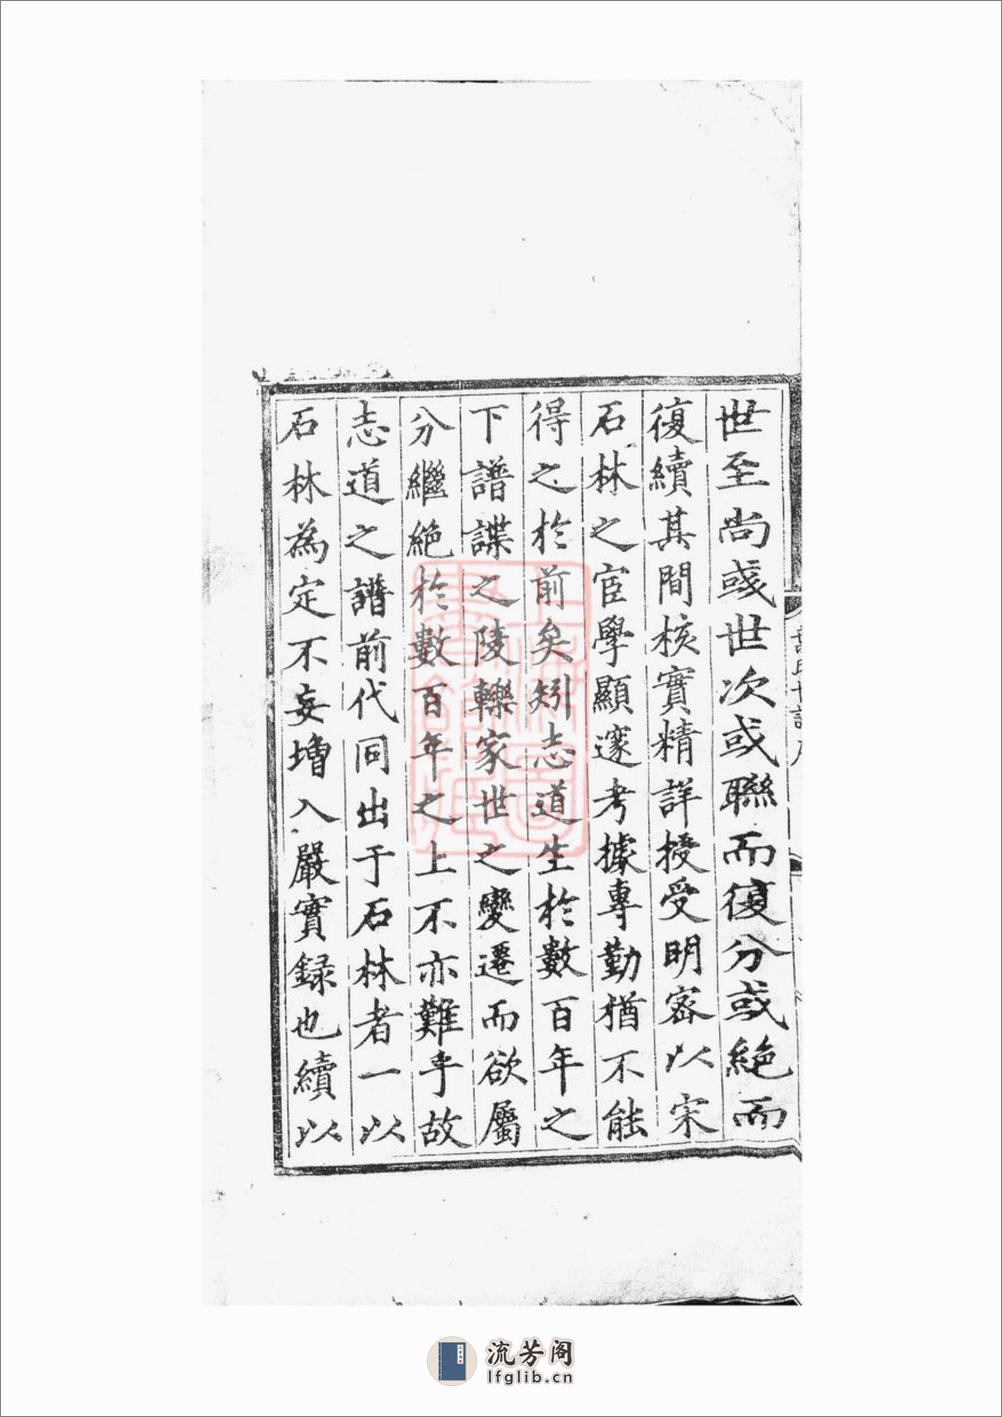 世至尚彧世次或聯而復分或絕而
復續其間核實精詳授受明密以宋
石林之宦學顯邃考據專勤猶不能
得之於前矣矧志道生於數百年之
下譜諜之陵轢家世之變遷而欲屬
分繼絕於數百年之上不亦難乎故
志道之譜前代同出于石林者一以
石林為定不妄増入嚴實録也續以
流芳阁
lfglib.cn